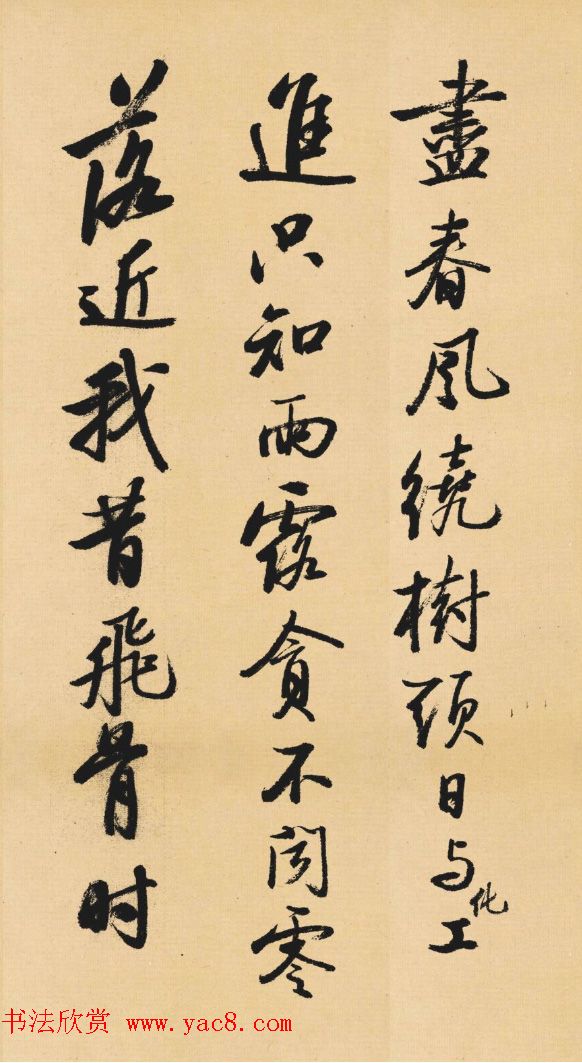 盡春風繞樹頭日与化工
進只知雨露貪不聞零
落近我昔飛骨时
书法欣赏 www.yac8.com